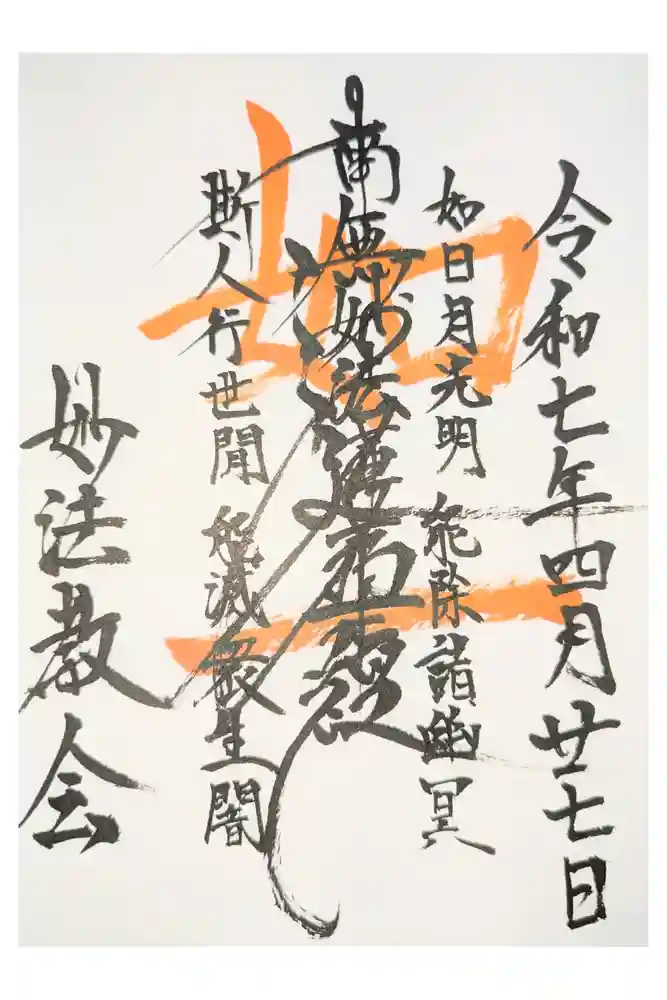 令和七年四月廿七日
如日月光明 能除諸幽冥
南無妙法蓮華経
斯人行世間 能滅衆生闇
妙法教会
如一